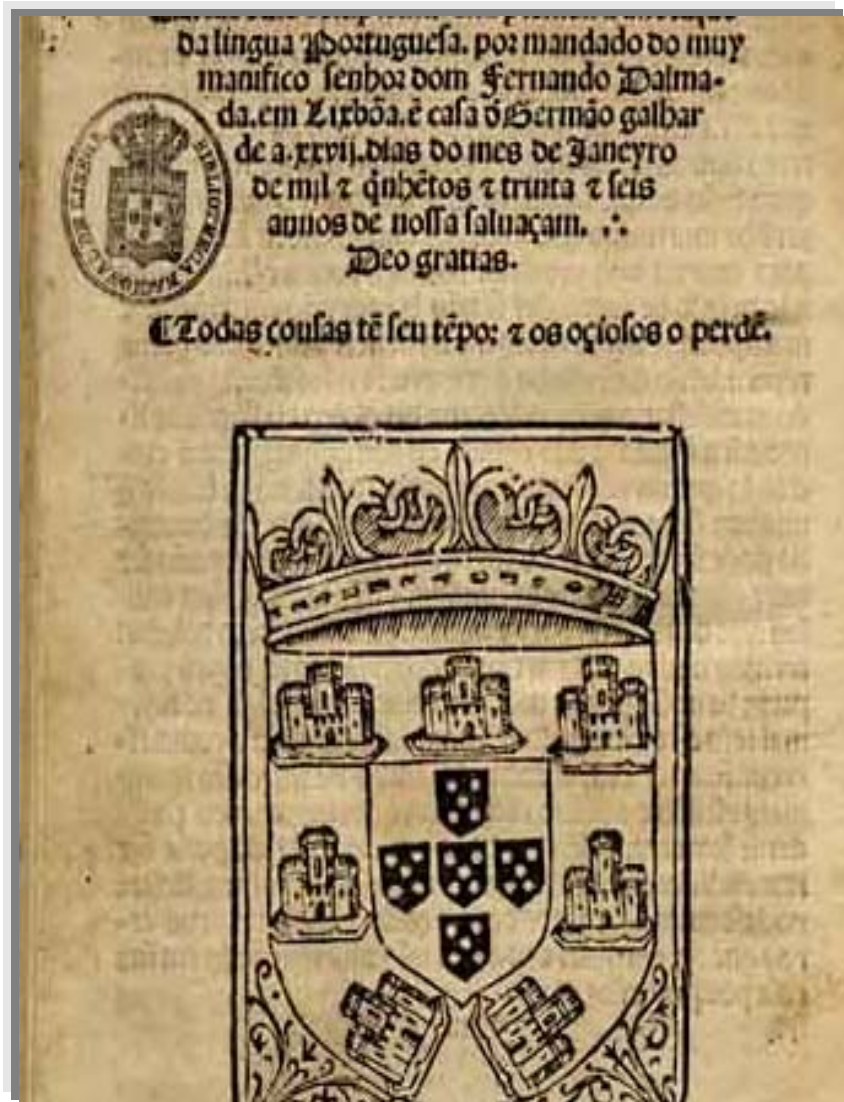 da lingua Portugueſa. por mandado do muy
manifico ſenhor dom Fernando Dalma-
da. em Lixbõa. ẽ caſa d̃ Germão galhar
de a. xxvij. dias do mes de Janeyro
de mil ⁊ q̃nhẽtos ⁊ trinta ⁊ ſeis
annos de noſſa ſaluaçam. ∴
Deo gratias.
BIBLIOTHECA NACIONAL DE LISBOA
¶Todas couſas tẽ ſeu tẽpo: ⁊ os oçioſos o perdẽ.